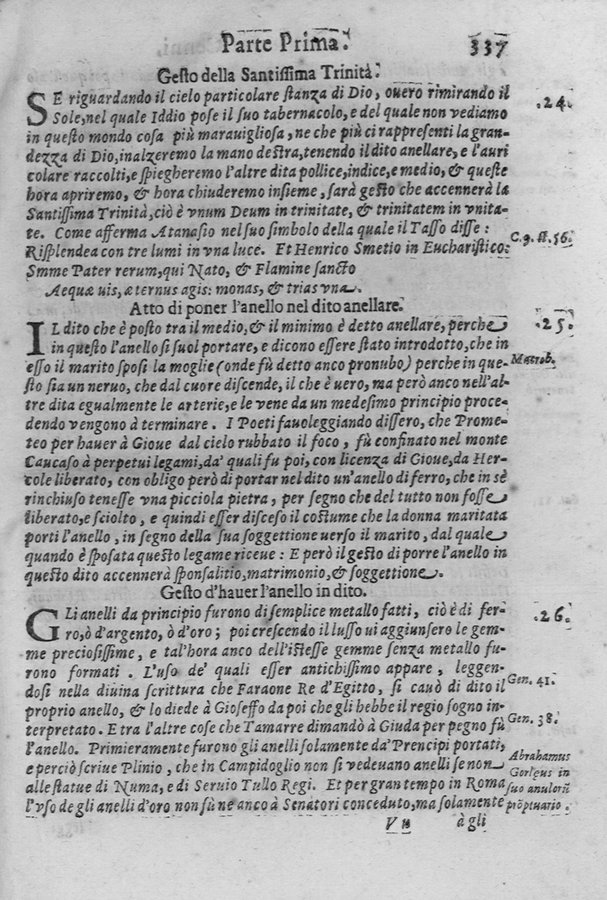 Parte Prima. 337
Gesto della Santissima Trinità.
SE riguardando il cielo particolare stanza di Dio, overo rimirando il .24.
Sole, nel quale Iddio pose il suo tabernacolo, e del quale non vediamo
in questo mondo cosa più marauigliosa, ne che più ci rappresenti la gran-
dezza di Dio, inalzeremo la mano destra, tenendo il dito anellare, e l'auri
colare raccolti, e spiegheremo l'altre dita pollice, indice, e medio, & queste
hora apriremo, & hora chiuderemo insieme, sarà gesto che accennerà la
Santissima Trinità, ciò è vnum Deum in trinitate, & trinitatem in vnita-
te. Come afferma Atanasio nel suo simbolo della quale il Tasso disse: C. 9. st. 56.
Risplendea con tre lumi in vna luce. Et Henrico Smetio in Eucharistico:
Smme Pater rerum, qui Nato, & Flamine sancto
Aequæ uis, æternus agis: monas, & trias vna.
Atto di poner l'anello nel dito anellare.
IL dito che è posto tra il medio, & il minimo è detto anellare, perche .25.
in questo l'anello si suol portare, e dicono essere stato introdotto, che in
esso il marito sposi la moglie (onde fù detto anco pronubo) perche in que- Macrob.
sto sia un neruo, che dal cuore discende, il che è uero, ma però anco nell'al-
tre dita egualmente le arterie, e le vene da un medesimo principio proce-
dendo vengono à terminare. I Poeti fauoleggiando dissero, che Prome-
teo per hauer à Gioue dal cielo rubbato il foco, fù confinato nel monte
Caucaso à perpetui legami, da' quali fu poi, con licenza di Gioue, da Her-
cole liberato, con obligo però di portar nel dito un'anello di ferro, che in sè
rinchiuso tenesse vna picciola pietra, per segno che del tutto non fosse
liberato, e sciolto, e quindi esser disceso il costume che la donna maritata
porti l'anello, in segno della sua soggettione uerso il marito, dal quale
quando è sposata questo legame riceue: E però il gesto di porre l'anello in
questo dito accennerà sponsalitio, matrimonio, & soggettione.
Gesto d'hauer l'anello in dito.
GLi anelli da principio furono di semplice metallo fatti, ciò è di fer- .26.
ro, ò d'argento, ò d'oro; poi crescendo il lusso ui aggiunsero le gem-
me preciosissime, e tal'hora anco dell'istesse gemme senza metallo fu-
rono formati. L'uso de' quali esser antichissimo appare, leggen-
dosi nella diuina scrittura che Faraone Re d'Egitto, si cauò di dito il Gen. 41.
proprio anello, & lo diede à Gioseffo da poi che gli hebbe il regio sogno in-
terpretato. E tra l'altre cose che Tamarre dimandò à Giuda per pegno fù Gen. 38.
l'anello. Primieramente furono gli anelli solamente da' Prencipi portati,
e perciò scriue Plinio, che in Campidoglio non si vedeuano anelli se non Abrahamus
alle statue di Numa, e di Seruio Tullo Regi. Et per gran tempo in Roma Gorleus in suo anulorũ
l'vso de gli anelli d'oro non fù ne anco à Senatori conceduto, ma solamente prõptuario.
V u à gli